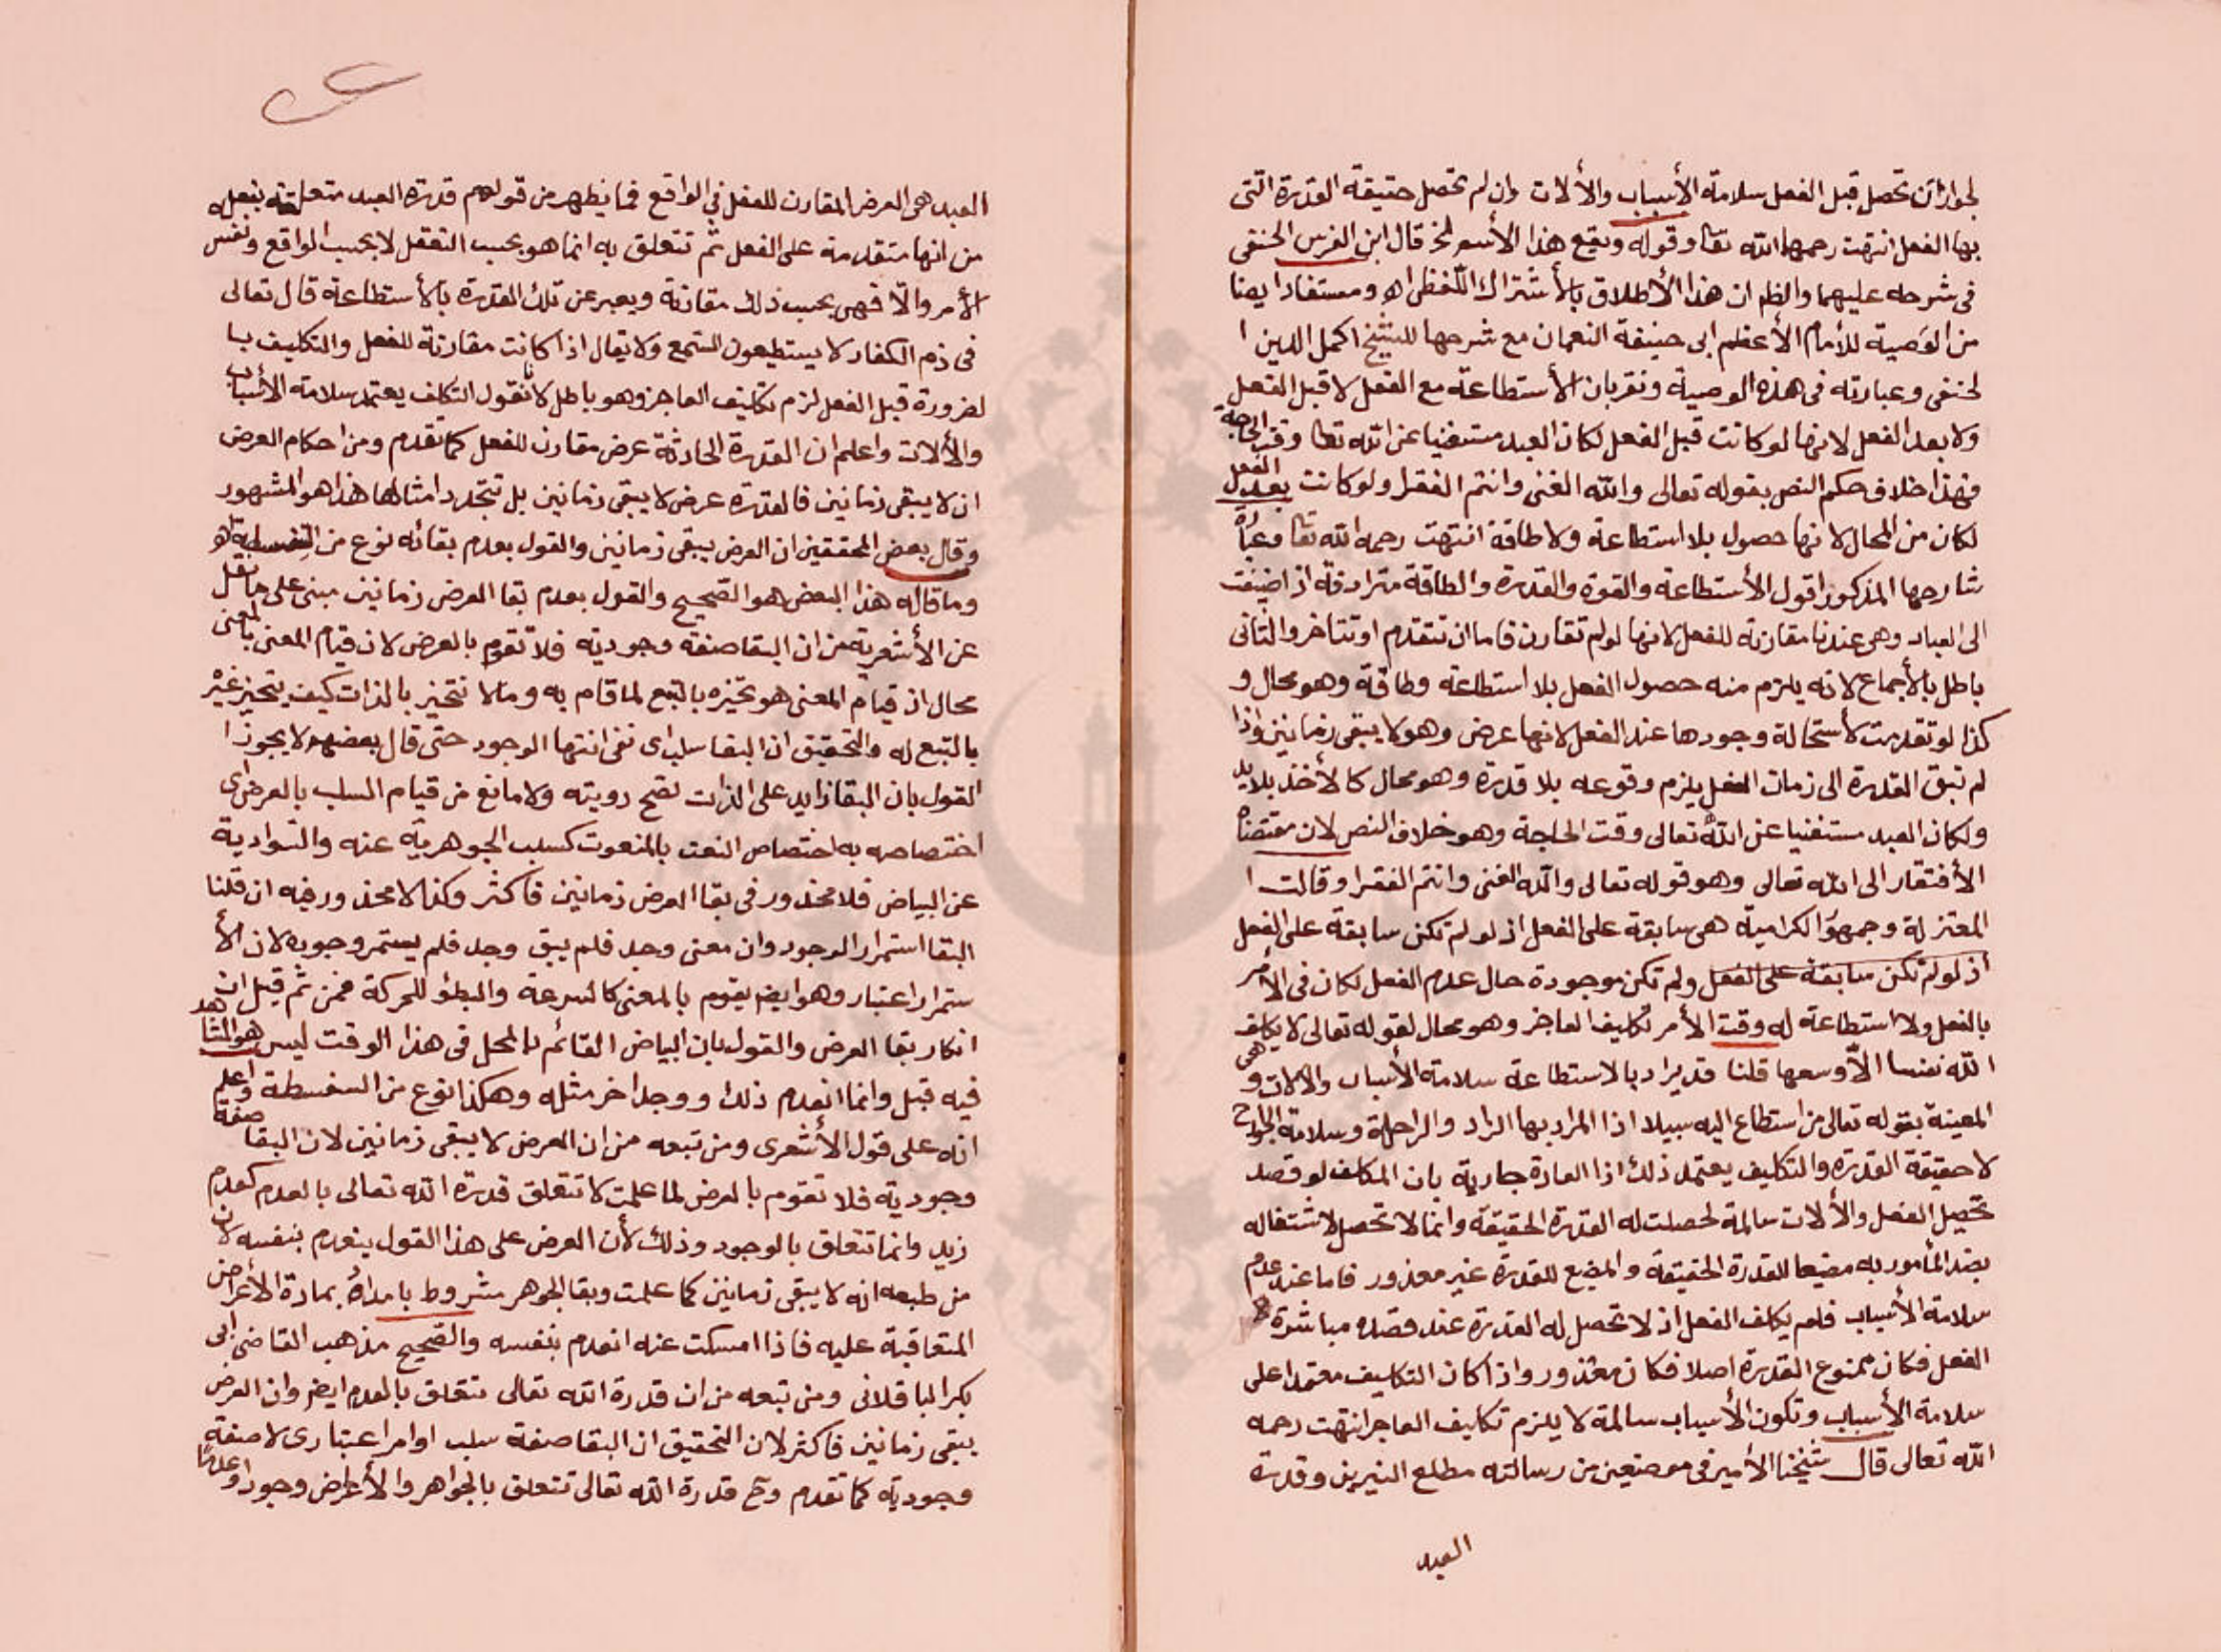 لجواز ان تحصل قبل الفعل سلامة الأسباب والألات وان لم تحصل حقيقة القدرة التى
بها الفعل انتهت رحمهما الله تعا وقوله ويقع هذا الأسم لخ قال ابن الغرس الحنفى
فى شرحه عليهما والظم ان هذا الأطلاق بالأشتراك اللفظى اه ومستفاد ايضا
من الوصية للأمام الأعظم ابى حنيفة النعمان مع شرحها للشيخ اكمل الدين ا
لحنفى وعبارته فى هذه الوصية ونقر بان الأستطاعة مع الفعل لا قبل الفعل
ولا بعد الفعل لانها لو كانت قبل الفعل لكان العبد مستغنيا عن الله تعا وقت الحاجة
فهذا خلاف حكم النص بقوله تعالى والله الغنى وانتم الفقرا ولو كانت بعد الفعل
لكان من المحال لانها حصول بلا استطاعة ولا طاقة انتهت رحمه الله تعا وعبارة
شارحها المذكور اقول الأستطاعة والقوة والقدرة والطاقة مترادفة اذا اضيفت
الى العباد وهى عندنا مقارنة للفعل لانها لو لم تقارن فاما ان تتقدم او تتاخر والثانى
باطل بالأجماع لانه يلزم منه حصول الفعل بلا استطاعة وطاقة وهو محال و
كذا لو تقدمت لأستحالة وجودها عند الفعل لانها عرض وهو لا يبقى زمانين واذا
لم تبق القدرة الى زمان الفعل يلزم وقوعه بلا قدرة وهو محال كالأخذ بلا يد
ولكان العبد مستغنيا عن الله تعالى وقت الحاجة وهو خلاف النص لان مقتضاه
الأفتقار الى الله تعالى وهو قوله تعالى والله الغنى وانتم الفقرا وقالت ا
لمعتزلة وجمهو الكرامية هى سابقة على الفعل اذ لو لم تكن سابقة على الفعل
اذ لو لم تكن سابقة على الفعل ولم تكن موجودة حال عدم الفعل لكان فى الأمر
بالفعل ولا استطاعة له وقت الأمر تكليف العاجز وهو محال لقوله تعالى لا يكلف
الله نفسا الا وسعها قلنا قد يراد بالاستطاعة سلامة الأسباب والالات وهى
المعينة بقوله تعالى من استطاع اليه سبيلا اذا المراد بها الزاد والراحلة وسلامة الجوارح
لا حقيقة القدرة والتكليف يعتمد ذلك اذا العادة جارية بان المكلف لو قصد
تحصيل الفعل والألات سالمة لحصلت له القدرة الحقيقة وانما لا تحصل لاشتغاله
بضد المأمور به مضيعا للقدرة الحقيقة والمضيع للقدرة غير معذور فاما عند عدم
سلامة الأسباب فلم يكلف الفعل اذ لا تحصل له القدرة عند قصده مباشرة
الفعل فكان ممنوع القدرة اصلا فكان معذور واذا كان التكليف معتمدا على
سلامة الأسباب وتكون الأسباب سالمة لا يلزم تكليف العاجز انتهت رحمه
الله تعالى قال شيخنا الأمير فى موضعين من رسالته مطلع النيرين وقدرة
العبد
العبد هى العرض المقارن للفعل فى الواقع فما يظهر من قولهم قدرة العبد متعلقة بفعله
من انها متقدمة على الفعل ثم تتعلق به انما هو بحسب التعقل لا بحسب الواقع ونفس
الأمر والا فهى بحسب ذلك مقارنة ويعبر عن تلك القدرة بالأستطاعة قال تعالى
فى ذم الكفار لا يستطيعون السمع ولا يقال اذا كانت مقارنة للفعل والتكليف با
لضرورة قبل الفعل لزم تكليف العاجز وهو باطل لانا نقول التكليف يعتمد سلامة الأسباب
والألات واعلم ان القدرة الحادثة عرض مقارن للفعل كما تقدم ومن احكام العرض
ان لا يبقى زمانين فالقدرة عرض لا يبقى زمانين بل تتجدد امثالها هذا هو المشهور
وقال بعض المحققين ان العرض يبقى زمانين والقول بعدم بقائه نوع من السفسطة اه
وما قاله هذا البعض هو الصحيح والقول بعدم بقا العرض زمانين مبنى على ما نقل
عن الأشعرية من ان البقا صفة وجودية فلا تقوم بالعرض لان قيام المعنى بالمعنى
محال اذ قيام المعنى هو تحيزه بالتبع لما قام به وما لا تتحيز بالذات كيف يتحيز غيره
بالتبع له والتحقيق ان البقا سلب اى نفى انتها الوجود حتى قال بعضهم لا يجوز ا
لقول بان البقا زايد على الذات تصح رويته ولا مانع من قيام السلب بالعرض اى
اختصاصه به اختصاص النعت بالمنعوت كسلب الجوهرية عنه والسوادية
عن البياض فلا محذور فى بقا العرض زمانين فاكثر وكذا لا محذور فيه ان قلنا
البقا استمرار الوجود وان معنى وجد فلم يبق وجد فلم يستمر وجوده لان الأ
ستمرار اعتبار وهو ايضم يقوم بالمعنى كالسرعة والبطؤ للحركة فمن ثم قيل ان
انكار بقا العرض والقول بان البياض القائم بالمحل فى هذا الوقت ليس هو المشاهد
فيه قبل وانما انعدم ذلك ووجد اخر مثله وهكذا نوع من السفسطة واعلم
انه على قول الأشعرى ومن تبعه من ان العرض لا يبقى زمانين لان البقا صفة
وجودية فلا تقوم بالعرض لما علمت لا تتعلق قدرة الله تعالى بالعدم كعدم
زيد وانما تتعلق بالوجود وذلك لأن العرض على هذا القول ينعدم بنفسه لان
من طبعه انه لا يبقى زمانين كما علمت وبقا الجوهر مشروط بامداده بمادة الأعراض
المتعاقبة عليه فاذا امسكت عنه انعدم بنفسه والصحيح مذهب القاضى ابى
بكر الباقلانى ومن تبعه من ان قدرة الله تعالى تتعلق بالعدم ايضم وان العرض
يبقى زمانين فاكثر لان التحقيق ان البقا صفة سلب او امر اعتبارى لا صفة
وجودية كما تقدم وح قدرة الله تعالى تتعلق بالجواهر والأعراض وجودا وعدما